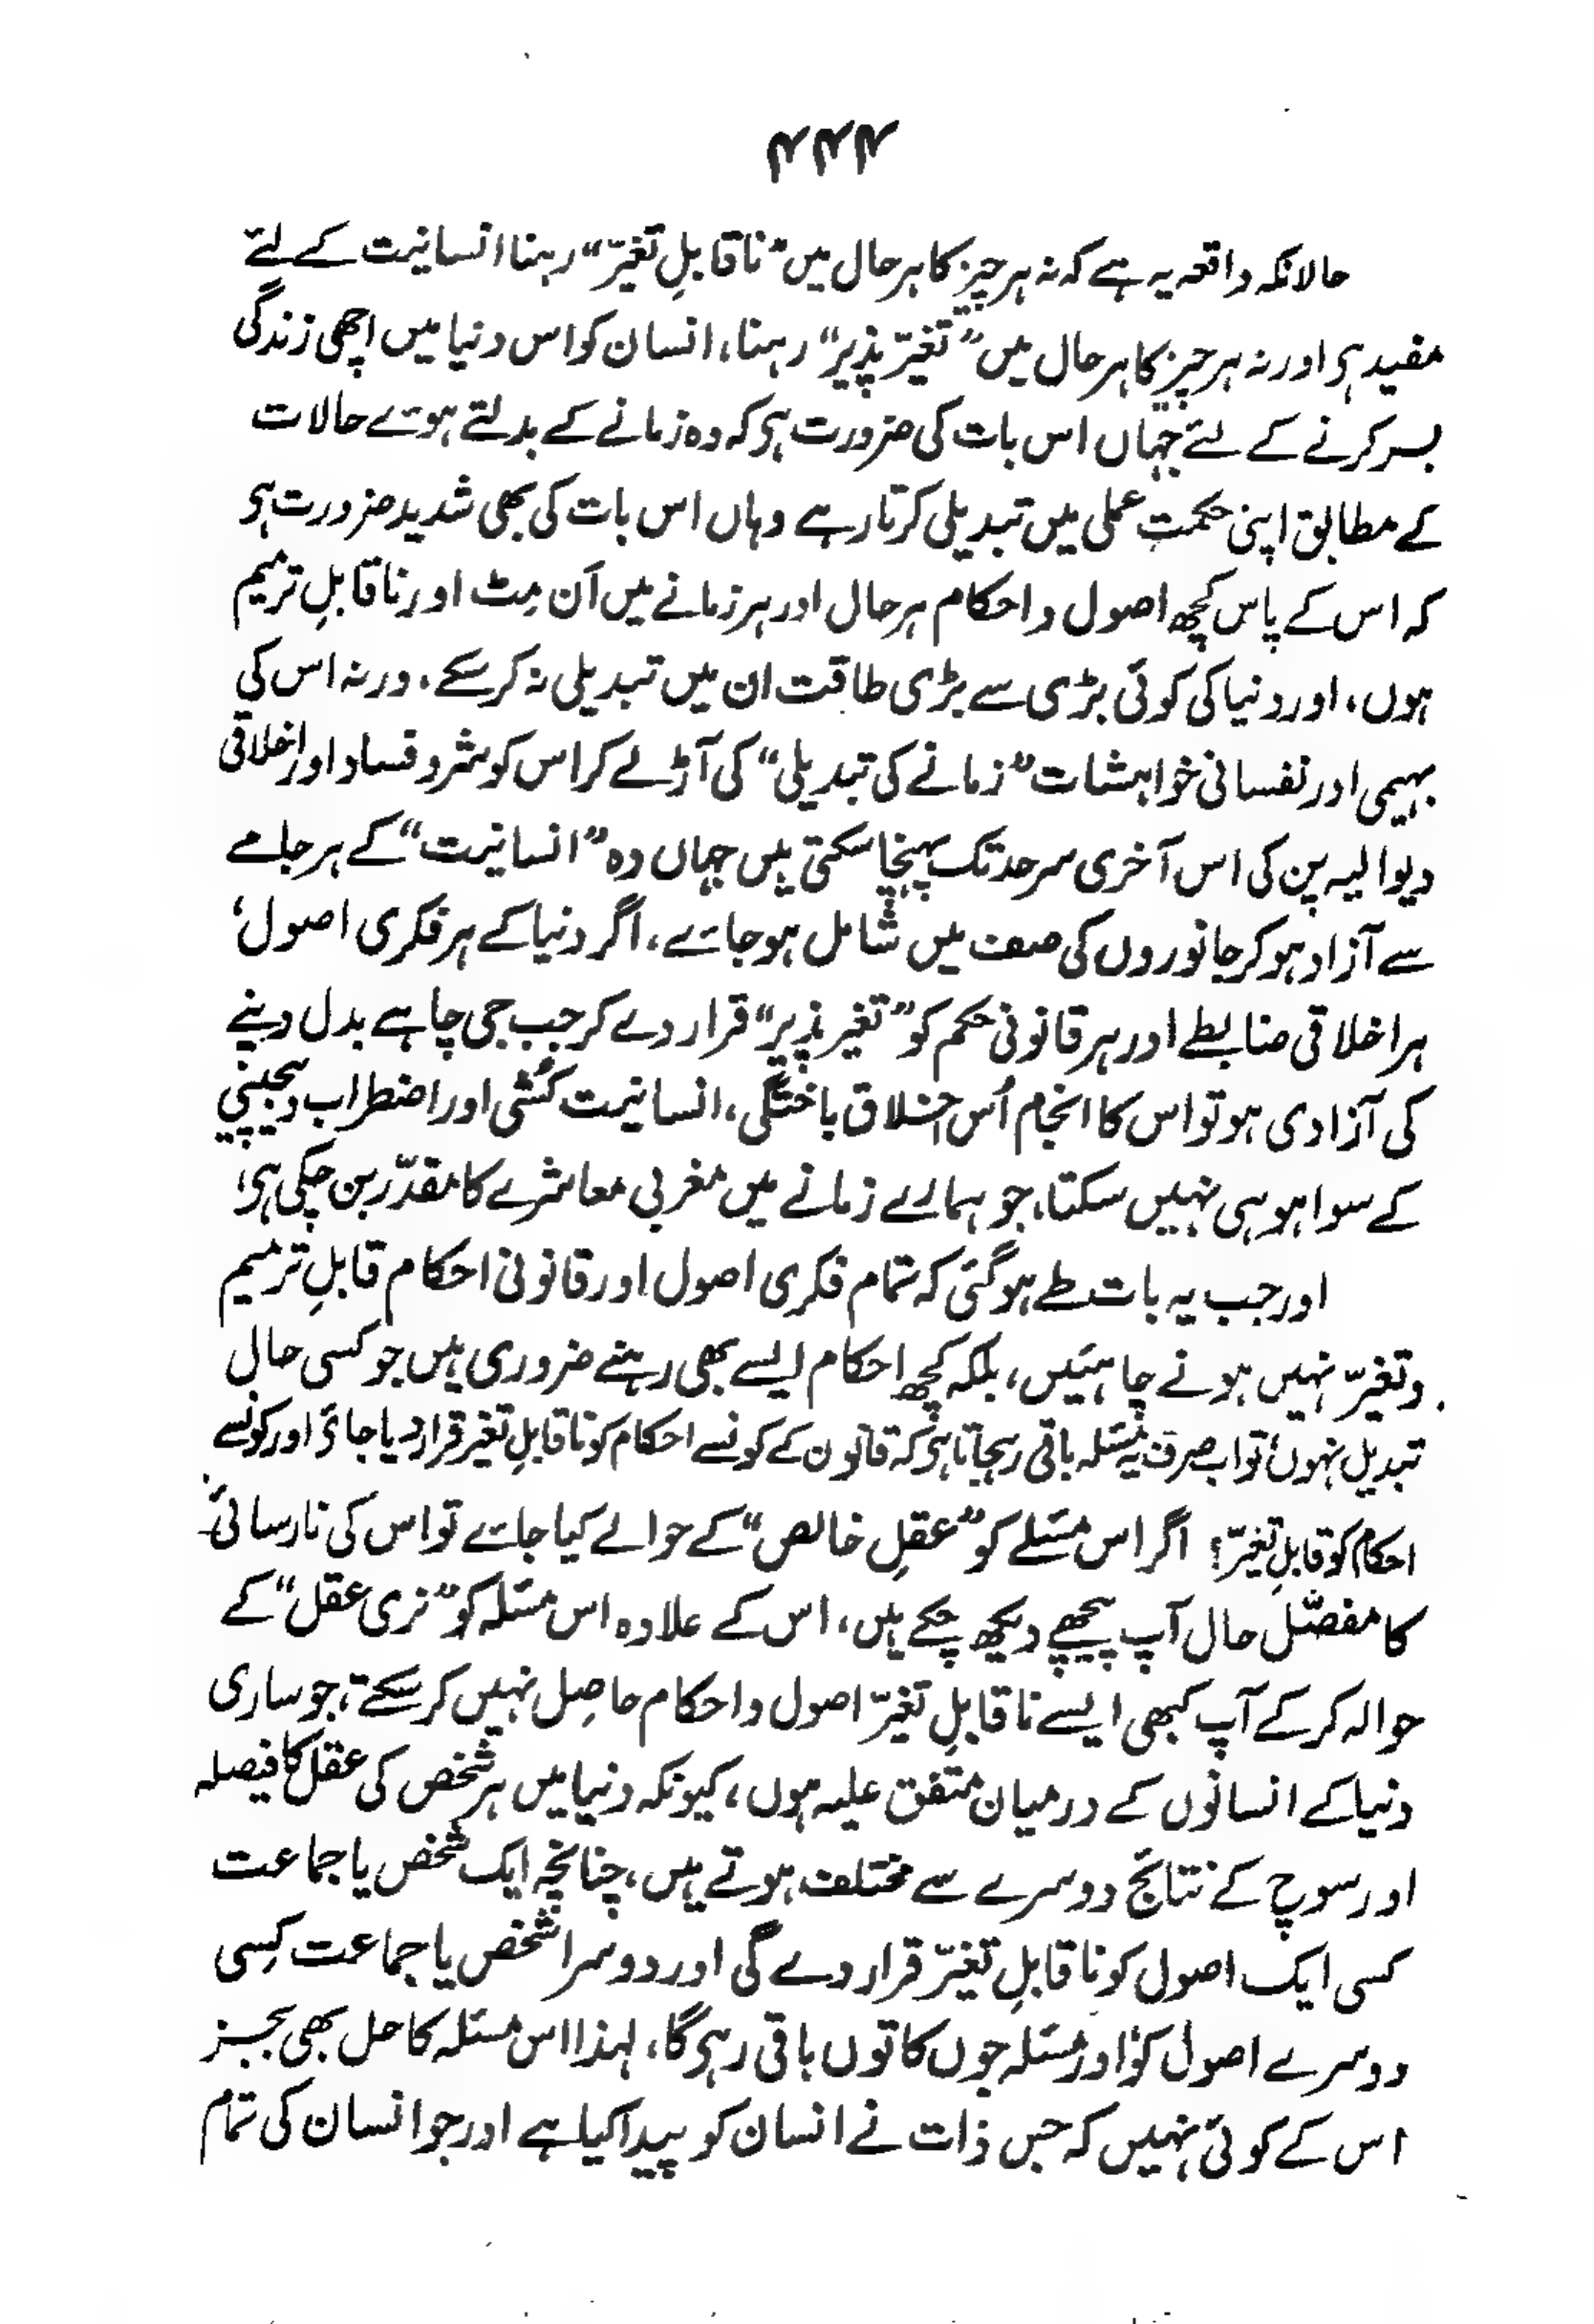 ۴۴۴
حالانکہ واقعہ یہ ہے کہ نہ ہر چیز کا ہر حال میں "ناقابلِ تغیّر" رہنا انسانیت کے لئے
مفید ہی اور نہ ہر چیز کا ہر حال میں "تغیّر پذیر" رہنا، انسان کو اس دنیا میں اچھی زندگی
بسر کرنے کے لئے جہاں اس بات کی ضرورت ہی کہ وہ زمانے کے بدلتے ہوئے حالات
کے مطابق اپنی حکمتِ عملی میں تبدیلی کرتا رہے وہاں اس بات کی بھی شدید ضرورت ہی
کہ اس کے پاس کچھ اصول و احکام ہر حال اور ہر زمانے میں اَن مِٹ اور ناقابلِ ترمیم
ہوں، اور دنیا کی کوئی بڑی سے بڑی طاقت ان میں تبدیلی نہ کرسکے، ورنہ اس کی
بہیمی اور نفسانی خواہشات "زمانے کی تبدیلی" کی آڑ لے کر اس کو شر و فساد اور اخلاقی
دیوالیہ پن کی اس آخری سرحد تک پہنچا سکتی ہیں جہاں وہ "انسانیت" کے ہر جامے
سے آزاد ہوکر جانوروں کی صف میں شامل ہوجائے، اگر دنیا کے ہر فکری اصول،
ہر اخلاقی ضابطے اور ہر قانونی حکم کو "تغیر پذیر" قرار دے کر جب جی چاہے بدل دینے
کی آزادی ہو تو اس کا انجام اُس اخلاق باختگی، انسانیت کُشی اور اضطراب و بیچینی
کے سوا ہو ہی نہیں سکتا، جو ہمارے زمانے میں مغربی معاشرے کا مقدّر بن چکی ہی،
اور جب یہ بات طے ہوگئی کہ تمام فکری اصول اور قانونی احکام قابلِ ترمیم
و تغیّر نہیں ہونے چاہئیں، بلکہ کچھ احکام ایسے بھی رہنے ضروری ہیں جو کسی حال
تبدیل نہوں، تو اب صرف یہ مسئلہ باقی رہجاتا ہی کہ قانون کے کونسے احکام کو ناقابلِ تغیر قرار دیا جائے اور کونسے
احکام کو قابلِ تغیّر؟ اگر اس مسئلے کو "عقلِ خالص" کے حوالے کیا جائے تو اس کی نارسائی
کا مفصّل حال آپ پیچھے دیکھ چکے ہیں، اس کے علاوہ اس مسئلہ کو "نری عقل" کے
حوالہ کرکے آپ کبھی ایسے ناقابلِ تغیّر اصول و احکام حاصِل نہیں کرسکتے، جو ساری
دنیا کے انسانوں کے درمیان متفق علیہ ہوں، کیونکہ دنیا میں ہر شخص کی عقل کا فیصلہ
اور سوچ کے نتائج دوسرے سے مختلف ہوتے ہیں، چنانچہ ایک شخص یا جماعت
کسی ایک اصول کو ناقابلِ تغیّر قرار دے گی اور دوسرا شخص یا جماعت کِسی
دوسرے اصول کو، اور مسئلہ جوں کا توں باقی رہی گا، لہٰذا اس مسئلہ کا حل بھی بجز
اس کے کوئی نہیں کہ جس ذات نے انسان کو پیدا کیا ہے اور جو انسان کی تمام